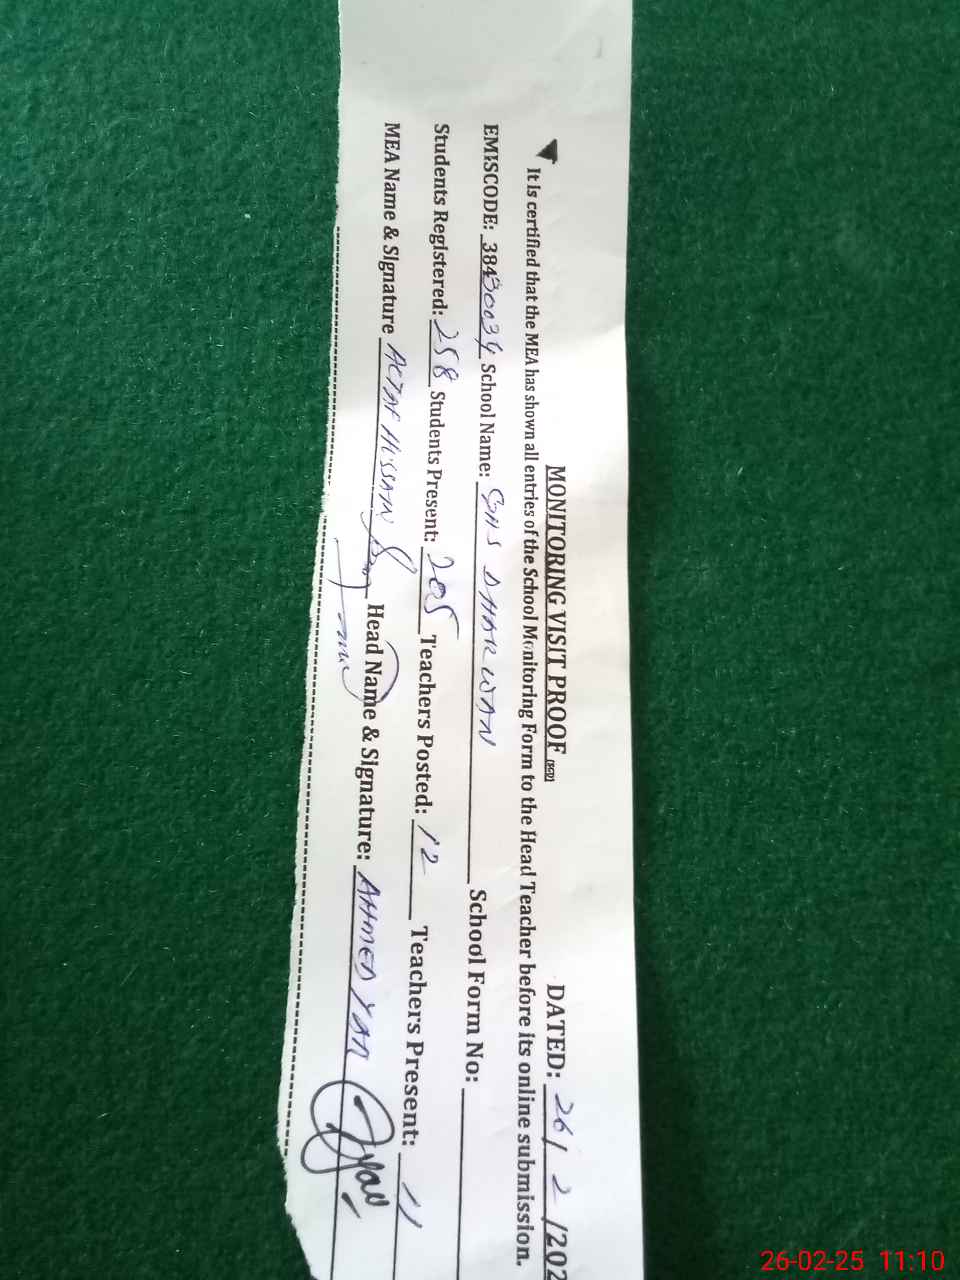 MONITORING VISIT PROOF (SED) DATED: 26/2/202
It is certified that the MEA has shown all entries of the School Monitoring Form to the Head Teacher before its online submission.
EMISCODE: 38430034 School Name: GHS DHARWAN School Form No:
Students Registered: 258 Students Present: 205 Teachers Posted: 12 Teachers Present: 11
MEA Name & Signature ALTAF HUSSAIN Head Name & Signature: AHMED YAR
26-02-25 11:10